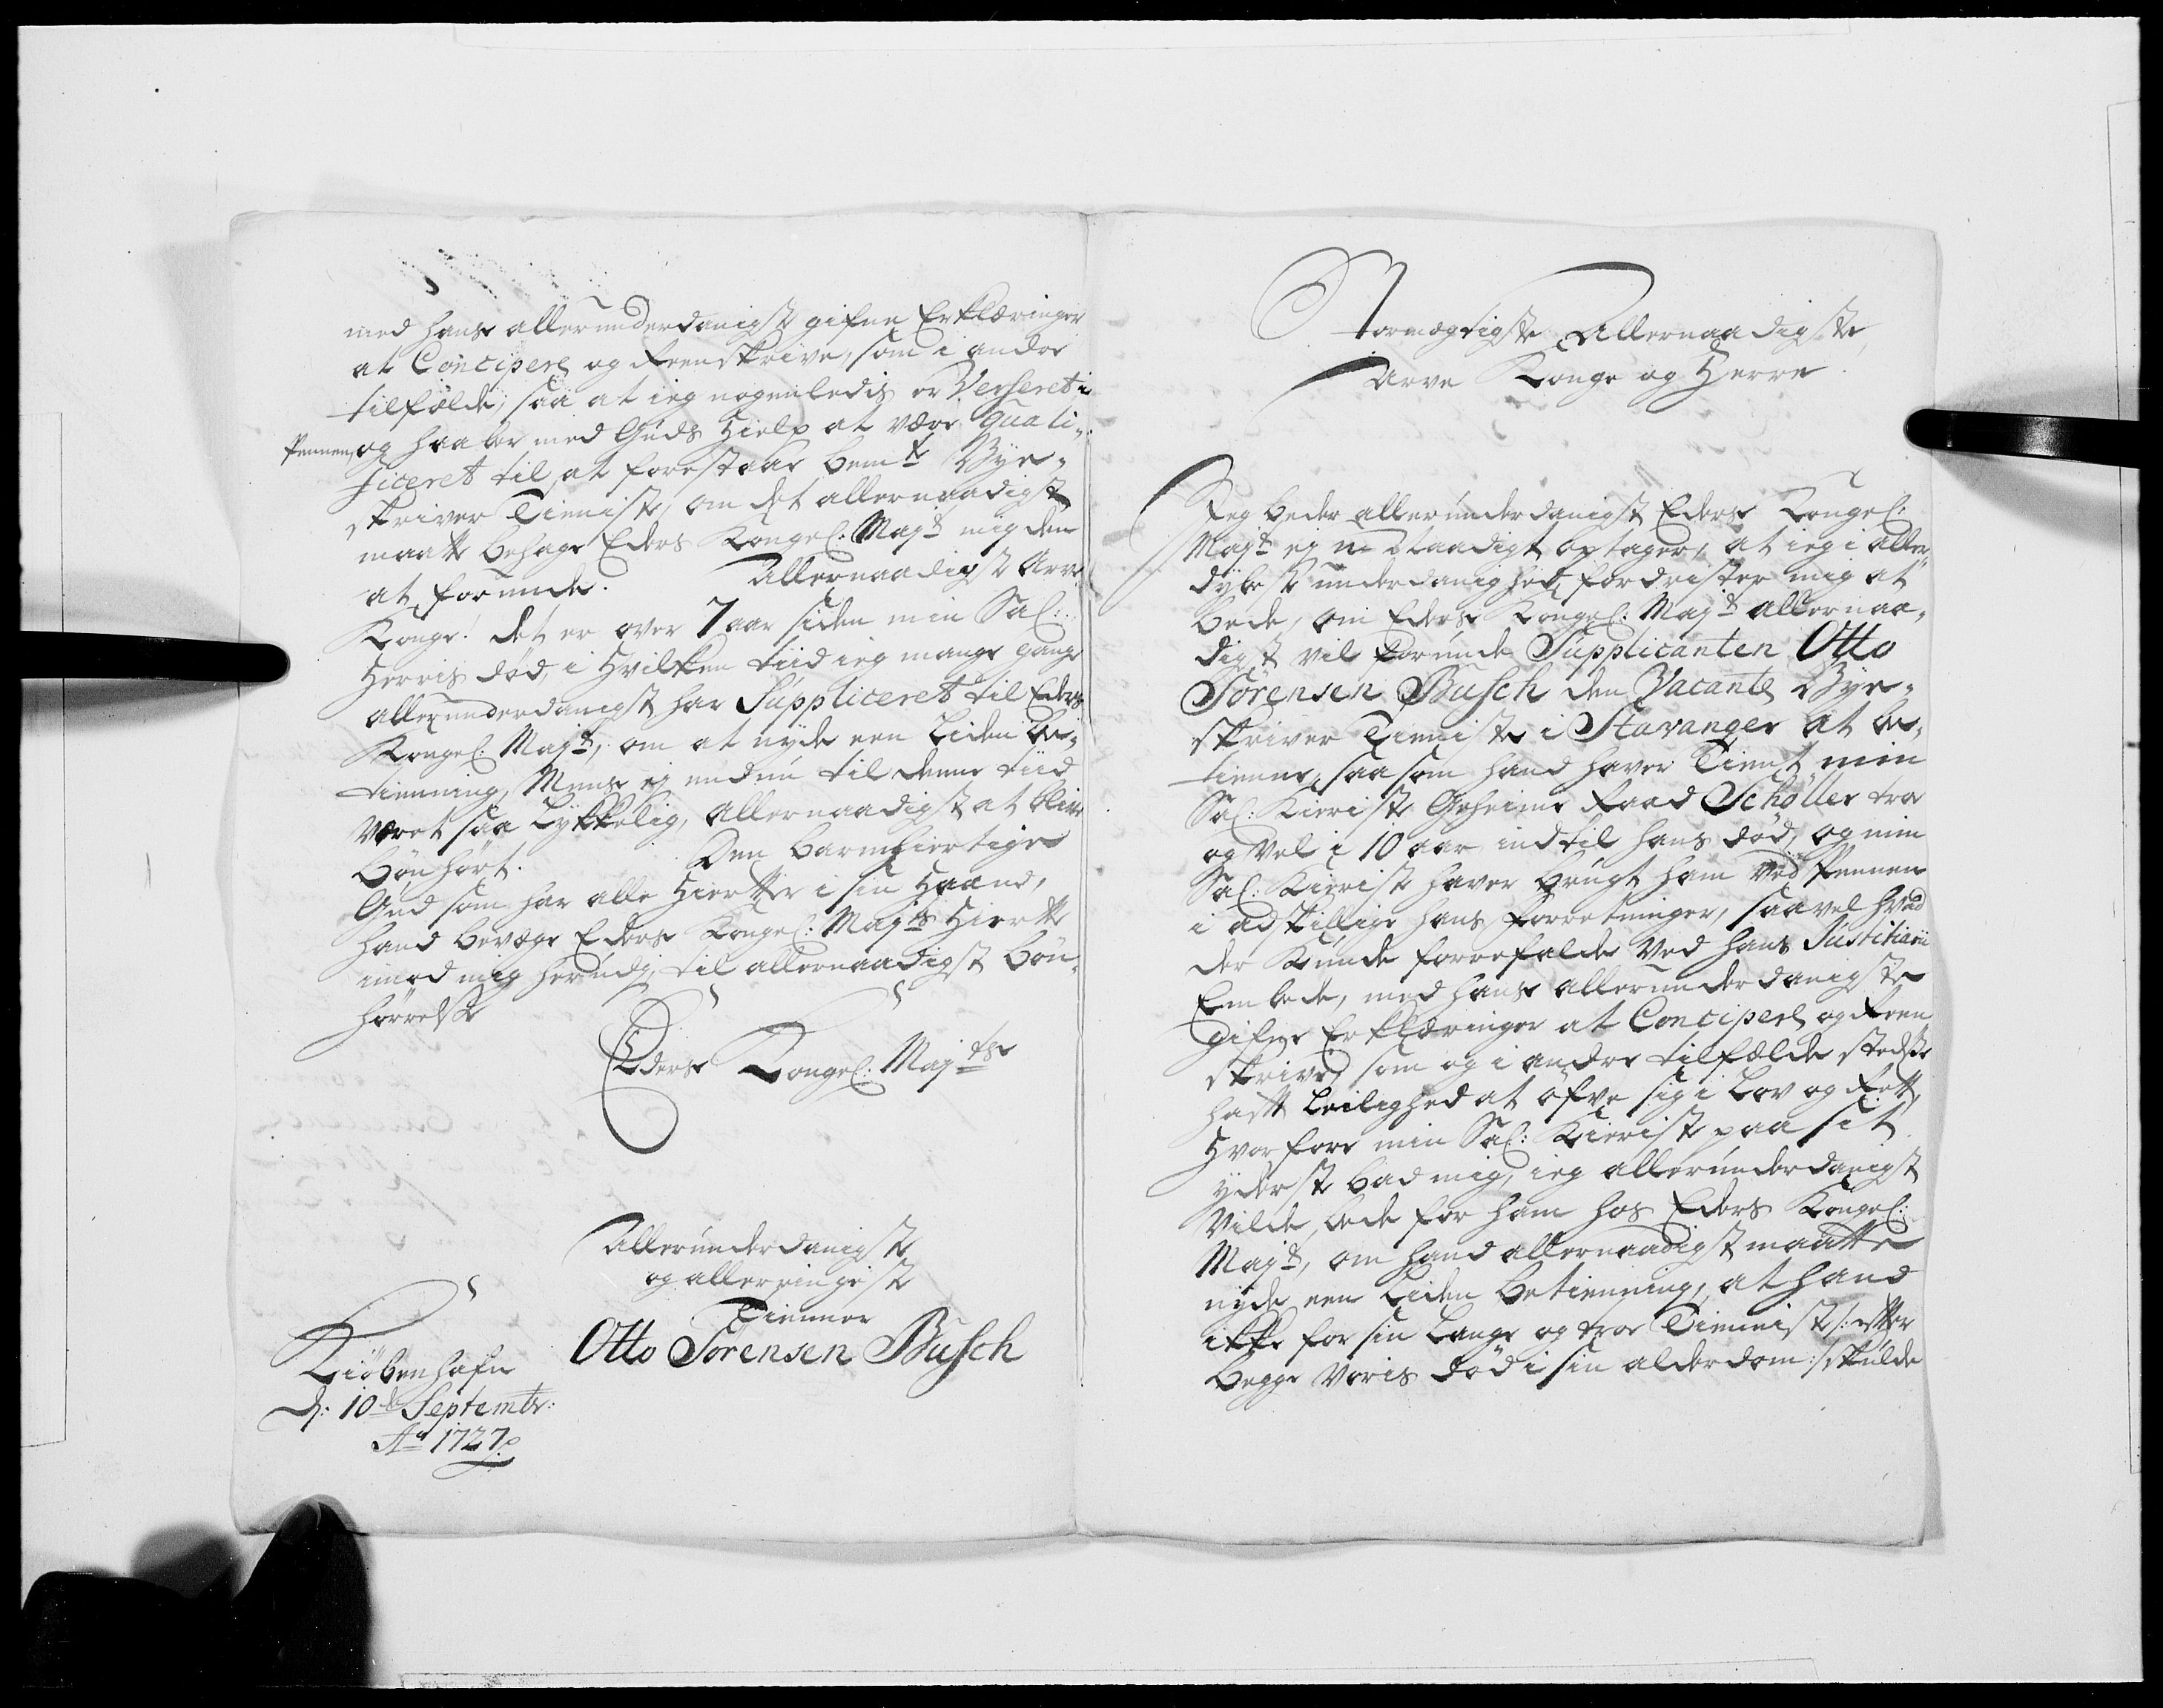 med hans allerunderdanigst gifne Erklæringer
at Concipere og Reenskrive, som i andre
tilfælde, saa at ieg nogenledis er Verseret i
Pennen, og haaber med Guds Hielp at være Quali-
ficeret til, at forestaae bemte Bye-
skriver Tieniste, om det allernaadigst
maatte behage Eders Kongel: Majt mig den
at forunde. Allernaadigst Arve
Konge! det er over 7 aar siden min Sal:
Herris død, i Hvilken tiid ieg mange gange
allerunderdanigst har Suppliceret til Eders
Kongel: Majt, om at nyde een Liden be-
tienning, Mens ej endnu til denne tiid
været saa Lykkelig, allernaadigst at blive
bønhørt. Den barmhiertige
Gud som har alle Hierter i sin Haand,
hand bevæge Eders Kongel: Majts Hierte
imod mig herudj, til allernaadigst bøn-
hørrelse
Eders Kongel: Majts
Allerunderdanigste
og allerringeste
Tienner
Otto Sørensen Busch
Kiøbenhafn
d: 10de Septembr:
Ao 1727
Stormægtigste Allernaadigste
Arve Konge og Herre
Jeg beder allerunderdanigst Eders Kongel:
Majt ej unaadigt optager, at ieg i aller-
dybeste underdanighed, fordrister mig at
bede, om Eders Kongel: Majt allernaa-
digst vil forunde Supplicanten Otto
Sørensen Busch den Vacante Bye-
skriver Tieniste i Stavanger at be-
tienne, saasom hand haver Tient min
Sal: Kieriste Geheime Raad Schøller troe
og Vel i 10 aar indtil hans død, og min
Sal: Kieriste haver brugt ham Ved Pennen
i adskillige hans forretninger, saavel hvad
der Kunde forrefalde Ved hans Justitiarii
Embede, med hans allerunderdanigste
gifne Erklæringer at Concipere og Reen
skrive, som og i andre tilfælde stedse
hatt Leilighed at øfve sig i Lov og Rett,
Hvorfore min Sal: Kieriste paa sit
yderste bad mig, ieg allerunderdanigst
Vilde bede for ham hos Eders Kongel:
Majt, om hand allernaadigst maatte
nyde een Liden betienning, at hand
ikke for sin Lange og troe Tienniste /: efter
begge Voris død i sin alderdom :/ skulde